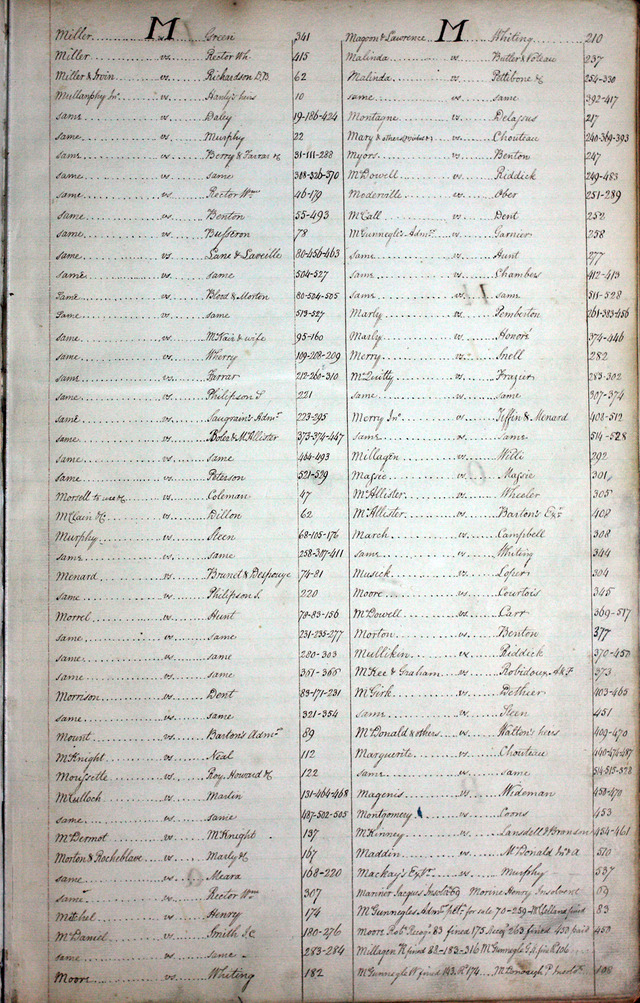 M
Miller vs Green 341
Miller vs Rector Wh. 415
Miller & Irvin vs Richardson D.D. 62
Mullanphy Jno. vs Hanly's heirs 10
same vs Daley 19-186-424
same vs Murphy 22
same vs Berry & Farrar &c 31-111-288
same vs same 318-326-570
same vs Rector Wm 46-179
same vs Benton 55-493
same vs Busseron 78
same vs Lane & Laveille 80-456-463
same vs same 504-527
same vs Blood & Morton 80-504-505
same vs same 513-527
same vs McNair & wife 95-160
same vs Wherry 109-208-209
same vs Farrar 212-260-310
same vs Philipson S 221
same vs Saugrain's Admr 223-295
same vs & McAllister 373-374-447
same vs same 464-493
same vs Peterson 521-529
Morsell to use &c vs Coleman 47
McClain &c vs Dillon 62
Murphy vs Steen 68-105-176
same vs same 258-307-411
Menard vs Brund & Despouye 74-81
same vs Philipson S. 220
Morrel vs Hunt 78-83-156
same vs same 231-235-277
same vs same 280-303
same vs same 351-365
Morrison vs Dent 83-171-231
same vs same 321-354
Mount vs Barton's Admr 89
McKnight vs Neal 112
Mousselle vs Roy, Howard &c 122
McCulloch vs Martin 131-464-468
same vs same 487-502-505
McDermot vs McKnight 137
Morton & Rocheblave vs Marly &c 167
same vs Meara 168-220
same vs Rector Wm 307
Mitchel vs Henry 174
McDaniel vs Smith J.C 180-276
same vs same 283-284
Moore vs Whiting 182
M
Magorn & Lawrence vs Whiting 210
Malinda vs Butler & 237
Malinda vs Pettibone &c 254-330
same vs same 392-417
Montagne vs Delassus 217
Mary & others vs Chouteau 240-369-393
Myors vs Benton 247
McDowell vs Riddick 249-483
Moderville vs Ober 251-289
McCall vs Dent 252
McGunnegle's Admr vs Garnier 258
same vs Hunt 277
same vs Chambers 412-413
same vs same 511-528
Marly vs Pemberton 261-383-456
Marly vs Honore 374-446
Merry vs Snell 282
McQuitty vs Frazier 283-302
same vs same 307-374
Merry Jno vs Tiffin & Menard 401-512
same vs same 514-528
Millagen vs Willi 292
Massie vs Massie 301
McAllister vs Wheeler 305
McAllister vs Barton's Exr 408
March vs Campbell 308
same vs Whiting 344
Musick vs Loper 304
Moore vs Courtois 345
McDowell vs Carr 369-517
Morton vs Benton 377
Mullikin vs Riddick 370-450
McKee & Graham vs Robidoux A&F 373
McGirk vs Bethier 403-465
same vs Steen 451
McDonald & others vs Walton's heirs 409-470
Marguerite vs Chouteau 440-474-487
same vs same 514-515-528
Magenis vs Wideman 458-470
Montgomery vs Coons 453
McKinney vs Lansdell & Bronson 454-461
Maddin vs McDonald 510
Mackay's Exr vs Murphy 537
Mariner Jacques Insolt 69 Morine Henry Insolvent 69
McGunnegles Admr petn for sale 70-259- McClellans fined 83
Moore Robt Recog 83 fined 175 Recog 263 fined 450 paid 450
Millagen R fined 82-183-316 McGunnegle G.A. fin R 106
McGunnegle W fined 143. R 174 McDonough P Insolt 108